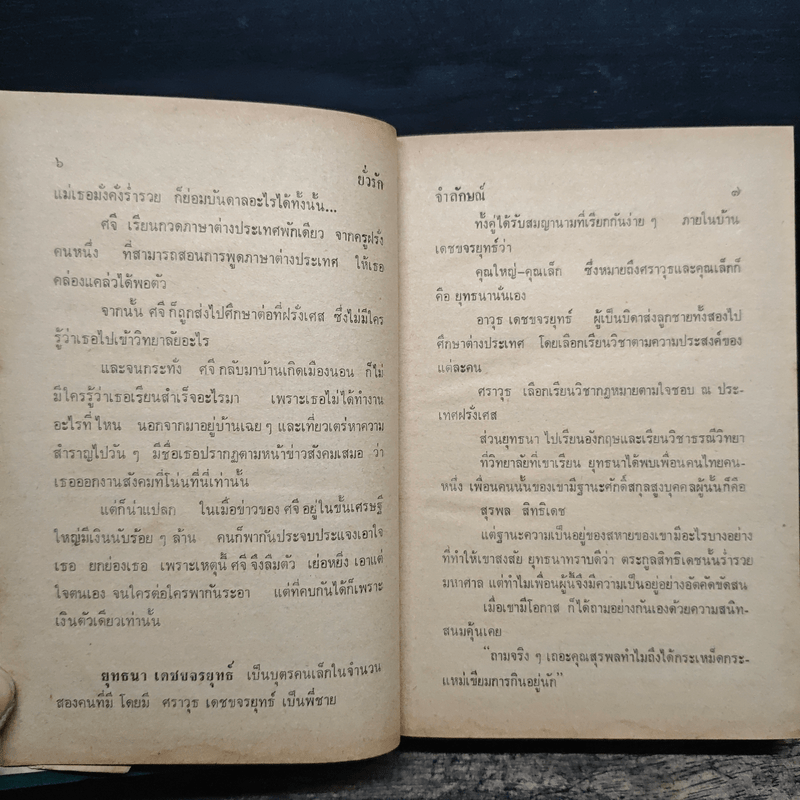 ๖
ยั่วรัก
แม่เธอมั่งคั่งร่ำรวย ก็ย่อมบันดาลอะไรได้ทั้งนั้น...
ศจี เรียนกวดภาษาต่างประเทศพักเดียว จากครูฝรั่ง
คนหนึ่ง ที่สามารถสอนการพูดภาษาต่างประเทศ ให้เธอ
คล่องแคล่วได้พอตัว
จากนั้น ศจี ก็ถูกส่งไปศึกษาต่อที่ฝรั่งเศส ซึ่งไม่มีใคร
รู้ว่าเธอไปเข้าวิทยาลัยอะไร
และจนกระทั่ง ศจี กลับมาบ้านเกิดเมืองนอน ก็ไม่
มีใครรู้ว่าเธอเรียนสำเร็จอะไรมา เพราะเธอไม่ได้ทำงาน
อะไรที่ไหน นอกจากมาอยู่บ้านเฉย ๆ และเที่ยวเตร่หาความ
สำราญไปวัน ๆ มีชื่อเธอปรากฏตามหน้าข่าวสังคมเสมอ ว่า
เธอออกงานสังคมที่โน่นที่นี่เท่านั้น
แต่ก็น่าแปลก ในเมื่อข่าวของ ศจี อยู่ในขั้นเศรษฐี
ใหญ่มีเงินนับร้อย ๆ ล้าน คนก็พากันประจบประแจงเอาใจ
เธอ ยกย่องเธอ เพราะเหตุนี้ ศจี จึงลืมตัว เย่อหยิ่ง เอาแต่
ใจตนเอง จนใครต่อใครพากันระอา แต่ที่คบกันได้ก็เพราะ
เงินตัวเดียวเท่านั้น
ยุทธนา เดชขจรยุทธ์ เป็นบุตรคนเล็กในจำนวน
สองคนที่มี โดยมี ศราวุธ เดชขจรยุทธ์ เป็นพี่ชาย
จำลักษณ์
๗
ทั้งคู่ได้รับสมญานามที่เรียกกันง่าย ๆ ภายในบ้าน
เดชขจรยุทธ์ว่า
คุณใหญ่-คุณเล็ก ซึ่งหมายถึงศราวุธและคุณเล็กก็
คือ ยุทธนานั่นเอง
อาวุธ เดชขจรยุทธ์ ผู้เป็นบิดาส่งลูกชายทั้งสองไป
ศึกษาต่างประเทศ โดยเลือกเรียนวิชาตามความประสงค์ของ
แต่ละคน
ศราวุธ เลือกเรียนวิชากฎหมายตามใจชอบ ณ ประ-
เทศฝรั่งเศส
ส่วนยุทธนา ไปเรียนอังกฤษและเรียนวิชาธรณีวิทยา
ที่วิทยาลัยที่เขาเรียน ยุทธนาได้พบเพื่อนคนไทยคน-
หนึ่ง เพื่อนคนนั้นของเขามีฐานะศักดิ์สกุลสูงบุคคลผู้นั้นก็คือ
สุรพล สิทธิเดช
แต่ฐานะความเป็นอยู่ของสหายของเขามีอะไรบางอย่าง
ที่ทำให้เขาสงสัย ยุทธนาทราบดีว่า ตระกูลสิทธิเดชนั้นร่ำรวย
มหาศาล แต่ทำไมเพื่อนผู้นี้จึงมีความเป็นอยู่อย่างอัตคัดขัดสน
เมื่อเขามีโอกาส ก็ได้ถามอย่างกันเองด้วยความสนิท-
สนมคุ้นเคย
"ถามจริง ๆ เถอะคุณสุรพลทำไมถึงได้กระเหม็ดกระ-
แหม่เขียมการกินอยู่นัก"